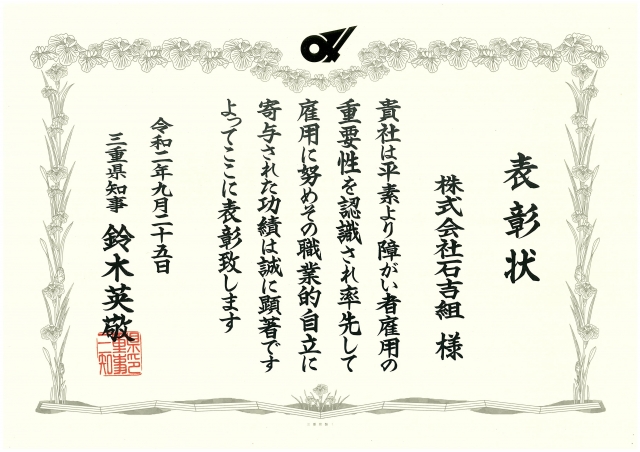 表彰状
株式会社石吉組 様
貴社は平素より障がい者雇用の
重要性を認識され率先して
雇用に努めその職業的自立に
寄与された功績は誠に顕著です
よってここに表彰致します
令和二年九月二十五日
三重県知事 鈴木英敬